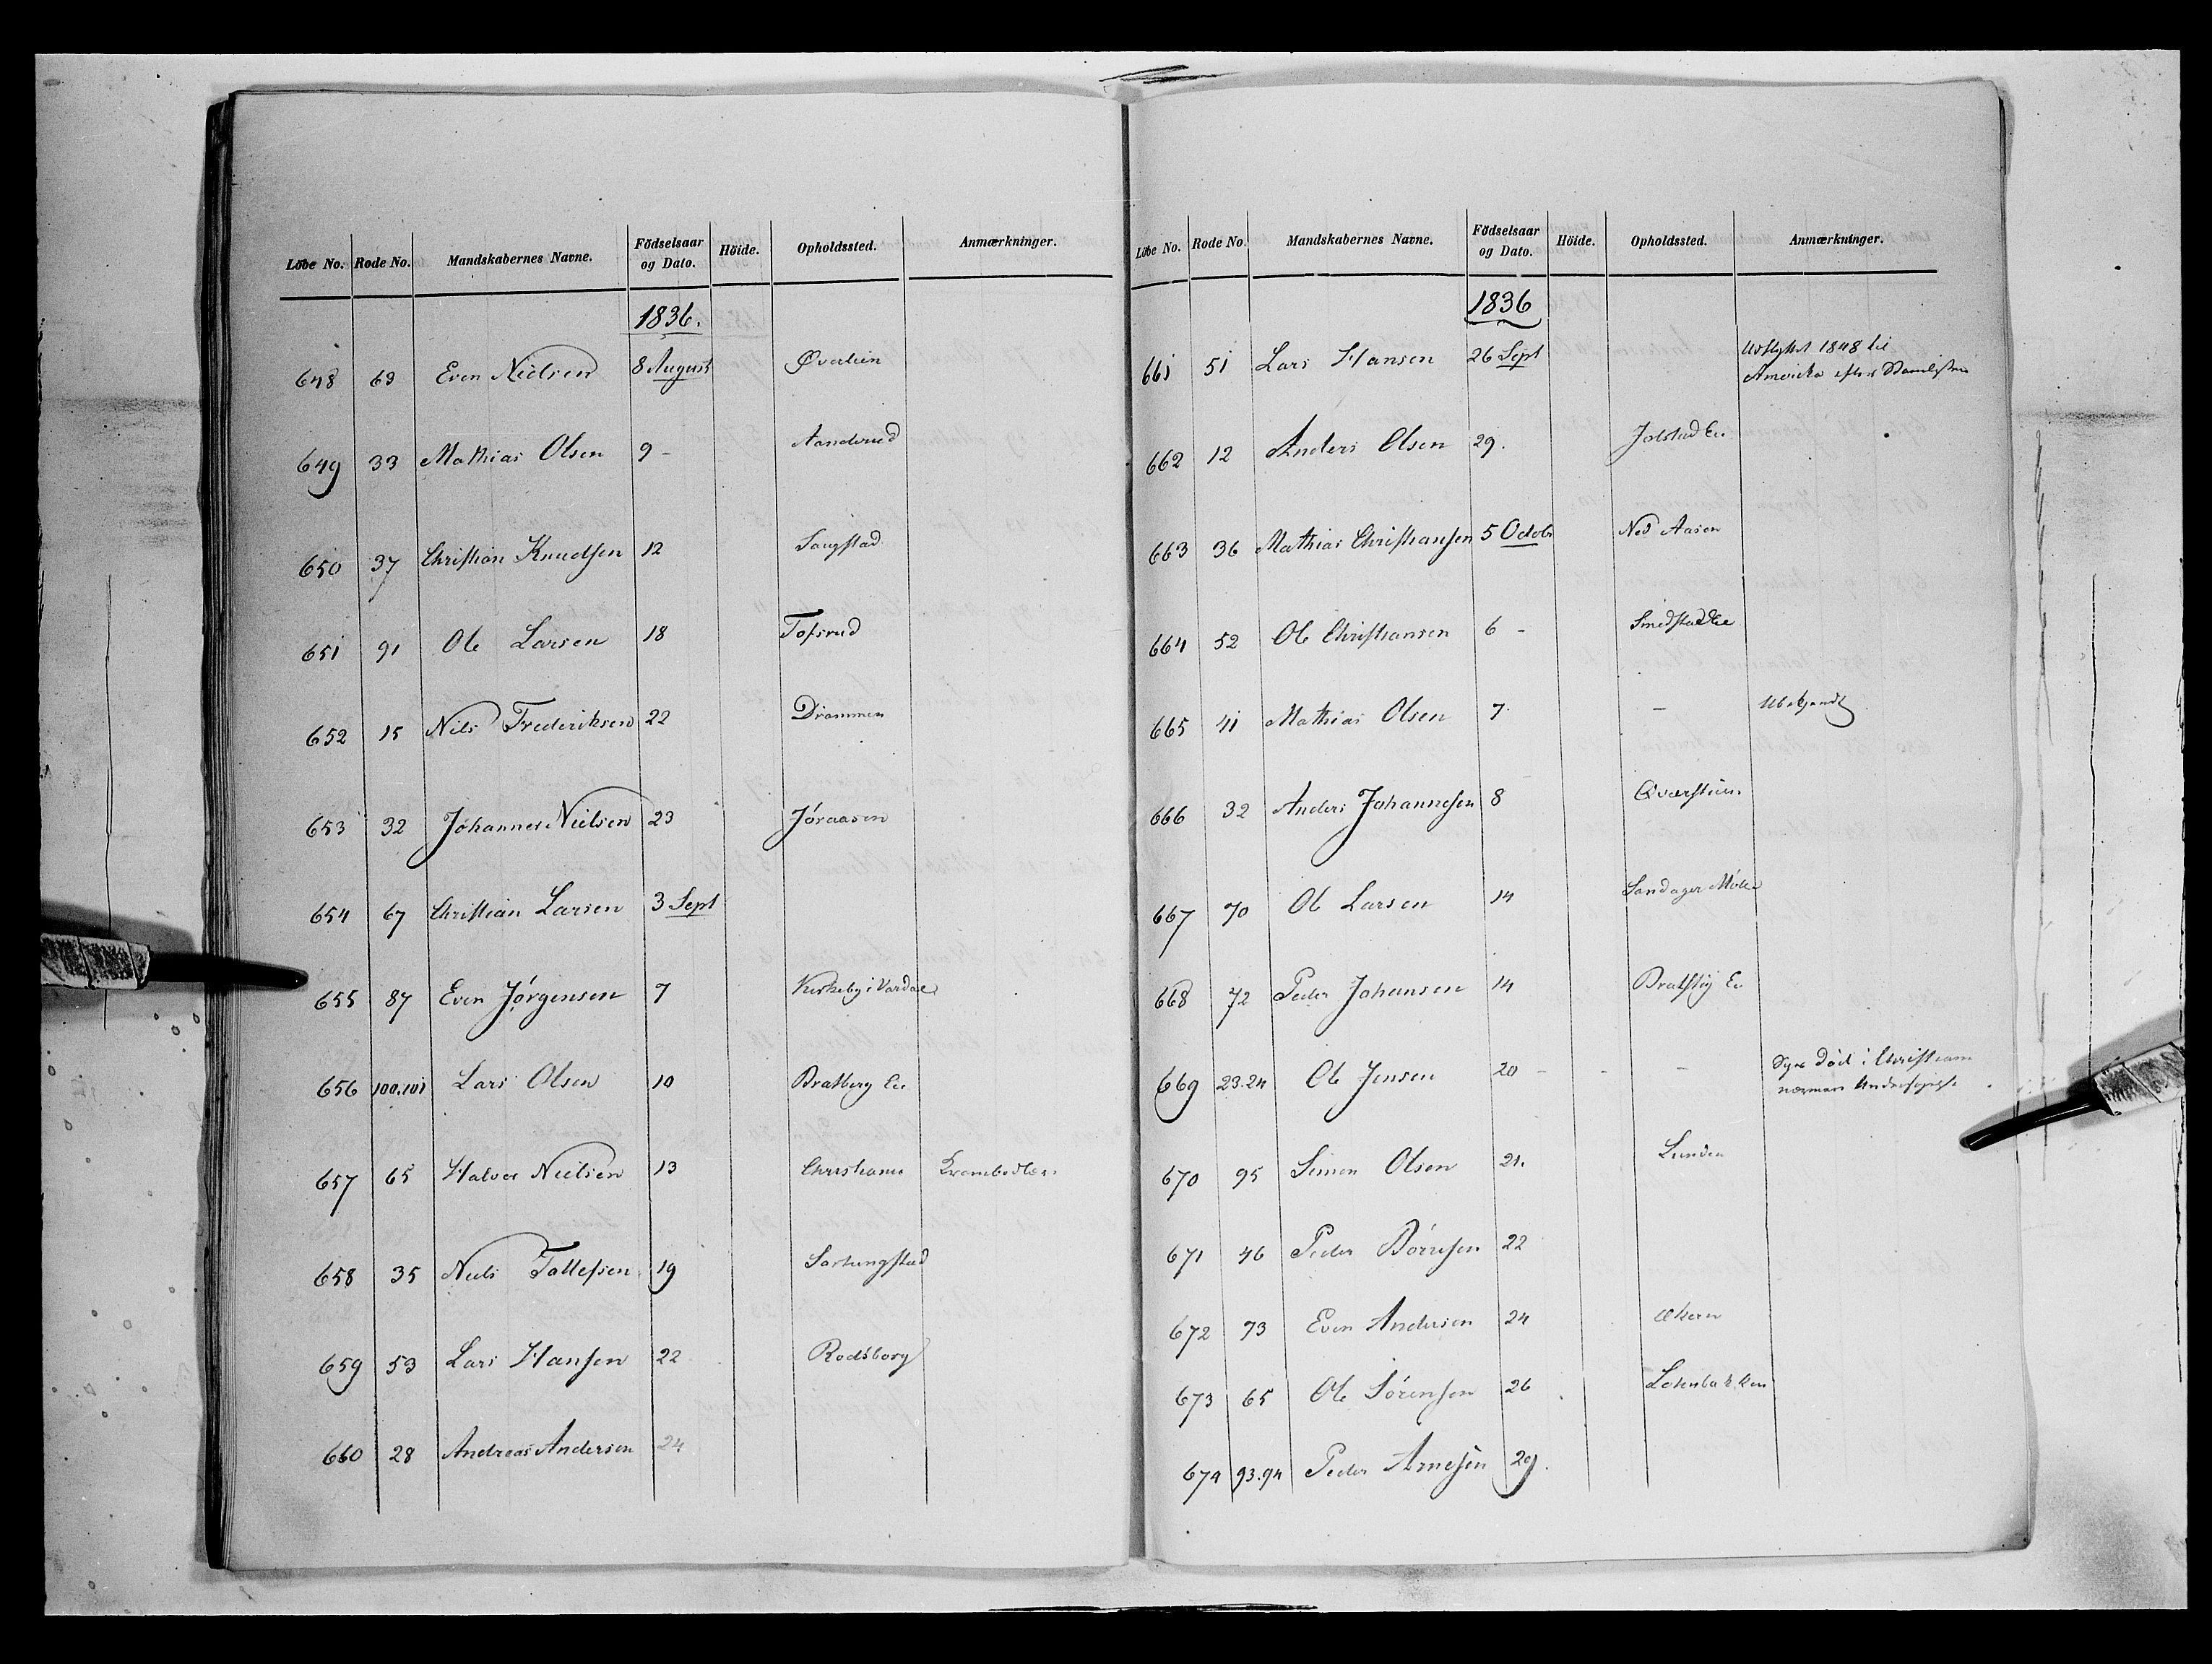 Löbe No. Rode No. Mandskabernes Navne. Födselsaar og Dato. Höide. Opholdssted. Anmærkninger.
1836.
648 69 Even Nielsen 8 August Øverlien
649 33 Mathias Olsen 9 - Aanderud
650 37 Christian Knudsen 12 Saugstad
651 91 Ole Larsen 18 Tofsrud
652 15 Nils Frederiksen 22 Drammen
653 32 Johannes Nielsen 23 Jøraasen
654 67 Christian Larsen 3 Sept
655 87 Even Jørgensen 7 Kirkeby i Vardal
656 100.101 Lars Olsen 10 Bratberg Ei
657 65 Halvor Nielsen 13 Christiania Krambodkar
658 35 Niels Tollefsen 19 Sortungstad
659 53 Lars Hansen 22 Rodsborg
660 28 Andreas Andersen 24
Löbe No. Rode No. Mandskabernes Navne. Födselsaar og Dato. Höide. Opholdssted. Anmærkninger.
1836
661 51 Lars Hansen 26 Sept Udflyttet 1848 til
Amerika efter
662 12 Anders Olsen 29. Jolstad Ei
663 36 Mathias Christiansen 5 Octob Ned Aasen
664 52 Ole Christiansen 6 - Smedstad Ei
665 41 Mathias Olsen 7 - Ubekjendt
666 32 Anders Johannesen 8 Qværstuen
667 70 Ole Larsen 14 Sandager Mølle
668 72 Peder Johansen 14 Bratstig Ei
669 23.24 Ole Jensen 20 - - - død i Christiania
nærmere Undersøgelse
670 95 Simen Olsen 21. Lunden
671 46 Peder Børresen 22
672 73 Even Andersen 24
673 65 Ole Sørensen 26
674 93.94 Peder Arnesen 29.